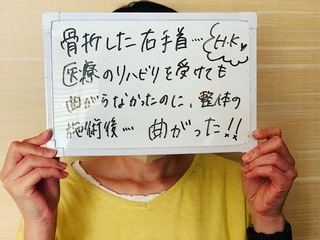 骨折した右手首… H.K♥
医療のリハビリを受けても
曲がらなかったのに、整体の
施術後… 曲がった!!